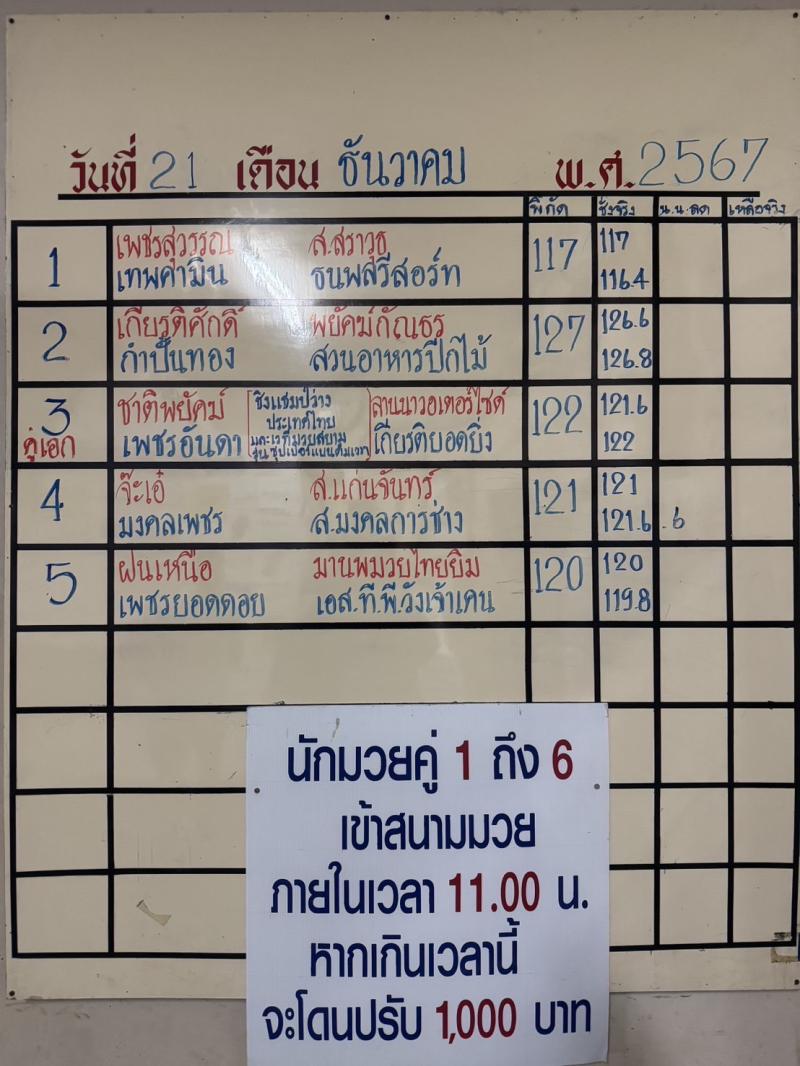 วันที่ 21 เดือน ธันวาคม พ.ศ. 2567
พิกัด ชั่งจริง น.น.ลด เหลือจริง
1 เพชรสุวรรณ ส.สราวุธ 117 117
เทพคำมิน ธนพลรีสอร์ท 116.4
2 เกียรติศักดิ์ พยัคฆ์กัณธร 127 126.6
กำปั้นทอง สวนอาหารปีกไม้ 126.8
3 ชาติพยัคม์ [ชิงแชมป์ว่าง ลานนาวอเตอร์ไซด์ 122 121.6
ประเทศไทย
คู่เอก เพชรอันดา และเวทีมวยสยาม เกียรติยอดยิ่ง 122
รุ่น ซุปเปอร์แบนตั้มเวท]
4 จ๊ะเอ๋ ส.แก่นจันทร์ 121 121
มงคลเพชร ส.มงคลการช่าง 121.6 .6
5 ฝนเหนือ มานพมวยไทยยิม 120 120
เพชรยอดดอย เอส.ที.พี.วังเจ้าเคน 119.8
นักมวยคู่ 1 ถึง 6
เข้าสนามมวย
ภายในเวลา 11.00 น.
หากเกินเวลานี้
จะโดนปรับ 1,000 บาท